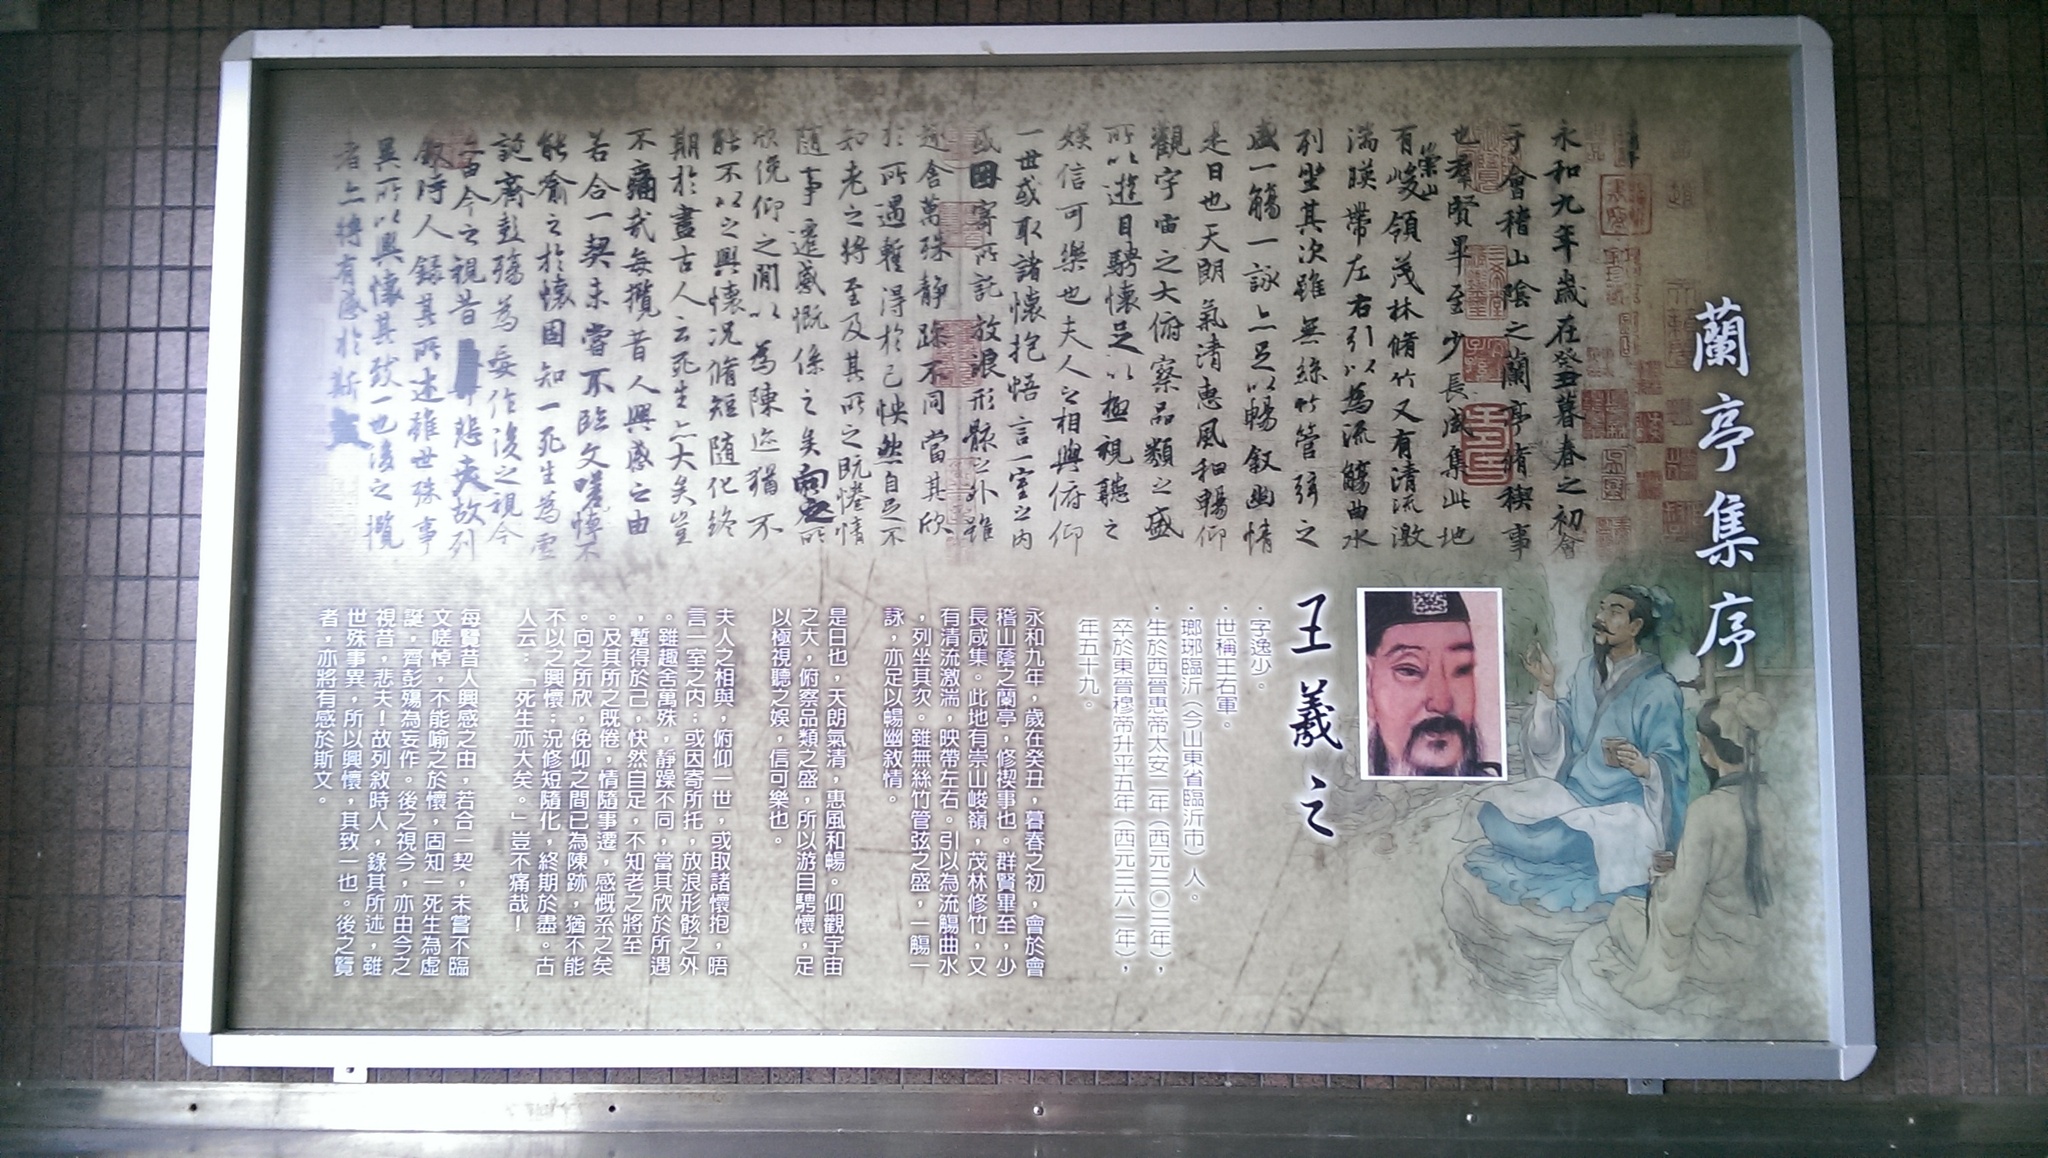 蘭亭集序
永和九年歲在癸丑暮春之初會
于會稽山陰之蘭亭脩稧事
也羣賢畢至少長咸集此地
有崇山峻領茂林脩竹又有清流激
湍暎帶左右引以為流觴曲水
列坐其次雖無絲竹管弦之
盛一觴一詠亦足以暢敘幽情
是日也天朗氣清惠風和暢仰
觀宇宙之大俯察品類之盛
所以遊目騁懷足以極視聽之
娛信可樂也夫人之相與俯仰
一世或取諸懷抱悟言一室之內
或因寄所託放浪形骸之外雖
趣舍萬殊靜躁不同當其欣
於所遇暫得於己怏然自足不
知老之將至及其所之既惓情
隨事遷感慨係之矣向之所
欣俛仰之閒以為陳迹猶不
能不以之興懷況脩短隨化終
期於盡古人云死生亦大矣豈
不痛哉每攬昔人興感之由
若合一契未嘗不臨文嗟悼不
能喻之於懷固知一死生為虛
誕齊彭殤為妄作後之視今
亦由今之視昔悲夫故列
敘時人錄其所述雖世殊事
異所以興懷其致一也後之攬
者亦將有感於斯文
王羲之
·字逸少。
·世稱王右軍。
·瑯琊臨沂（今山東省臨沂市）人。
·生於西晉惠帝太安二年（西元三〇三年），
卒於東晉穆帝升平五年（西元三六一年），
年五十九。
永和九年，歲在癸丑，暮春之初，會於會
稽山蔭之蘭亭，修禊事也。群賢畢至，少
長咸集。此地有崇山峻嶺，茂林修竹，又
有清流激湍，映帶左右。引以為流觴曲水
，列坐其次。雖無絲竹管弦之盛，一觴一
詠，亦足以暢幽敘情。
是日也，天朗氣清，惠風和暢。仰觀宇宙
之大，俯察品類之盛，所以游目騁懷，足
以極視聽之娛，信可樂也。
夫人之相與，俯仰一世，或取諸懷抱，晤
言一室之內；或因寄所托，放浪形骸之外
。雖趣舍萬殊，靜躁不同，當其欣於所遇
，暫得於己，快然自足，不知老之將至
。及其所之既倦，情隨事遷，感慨系之矣
。向之所欣，俛仰之間已為陳跡，猶不能
不以之興懷；況修短隨化，終期於盡。古
人云：「死生亦大矣。」豈不痛哉！
每覽昔人興感之由，若合一契，未嘗不臨
文嗟悼，不能喻之於懷，固知一死生為虛
誕，齊彭殤為妄作。後之視今，亦由今之
視昔，悲夫！故列敘時人，錄其所述，雖
世殊事異，所以興懷，其致一也。後之覽
者，亦將有感於斯文。